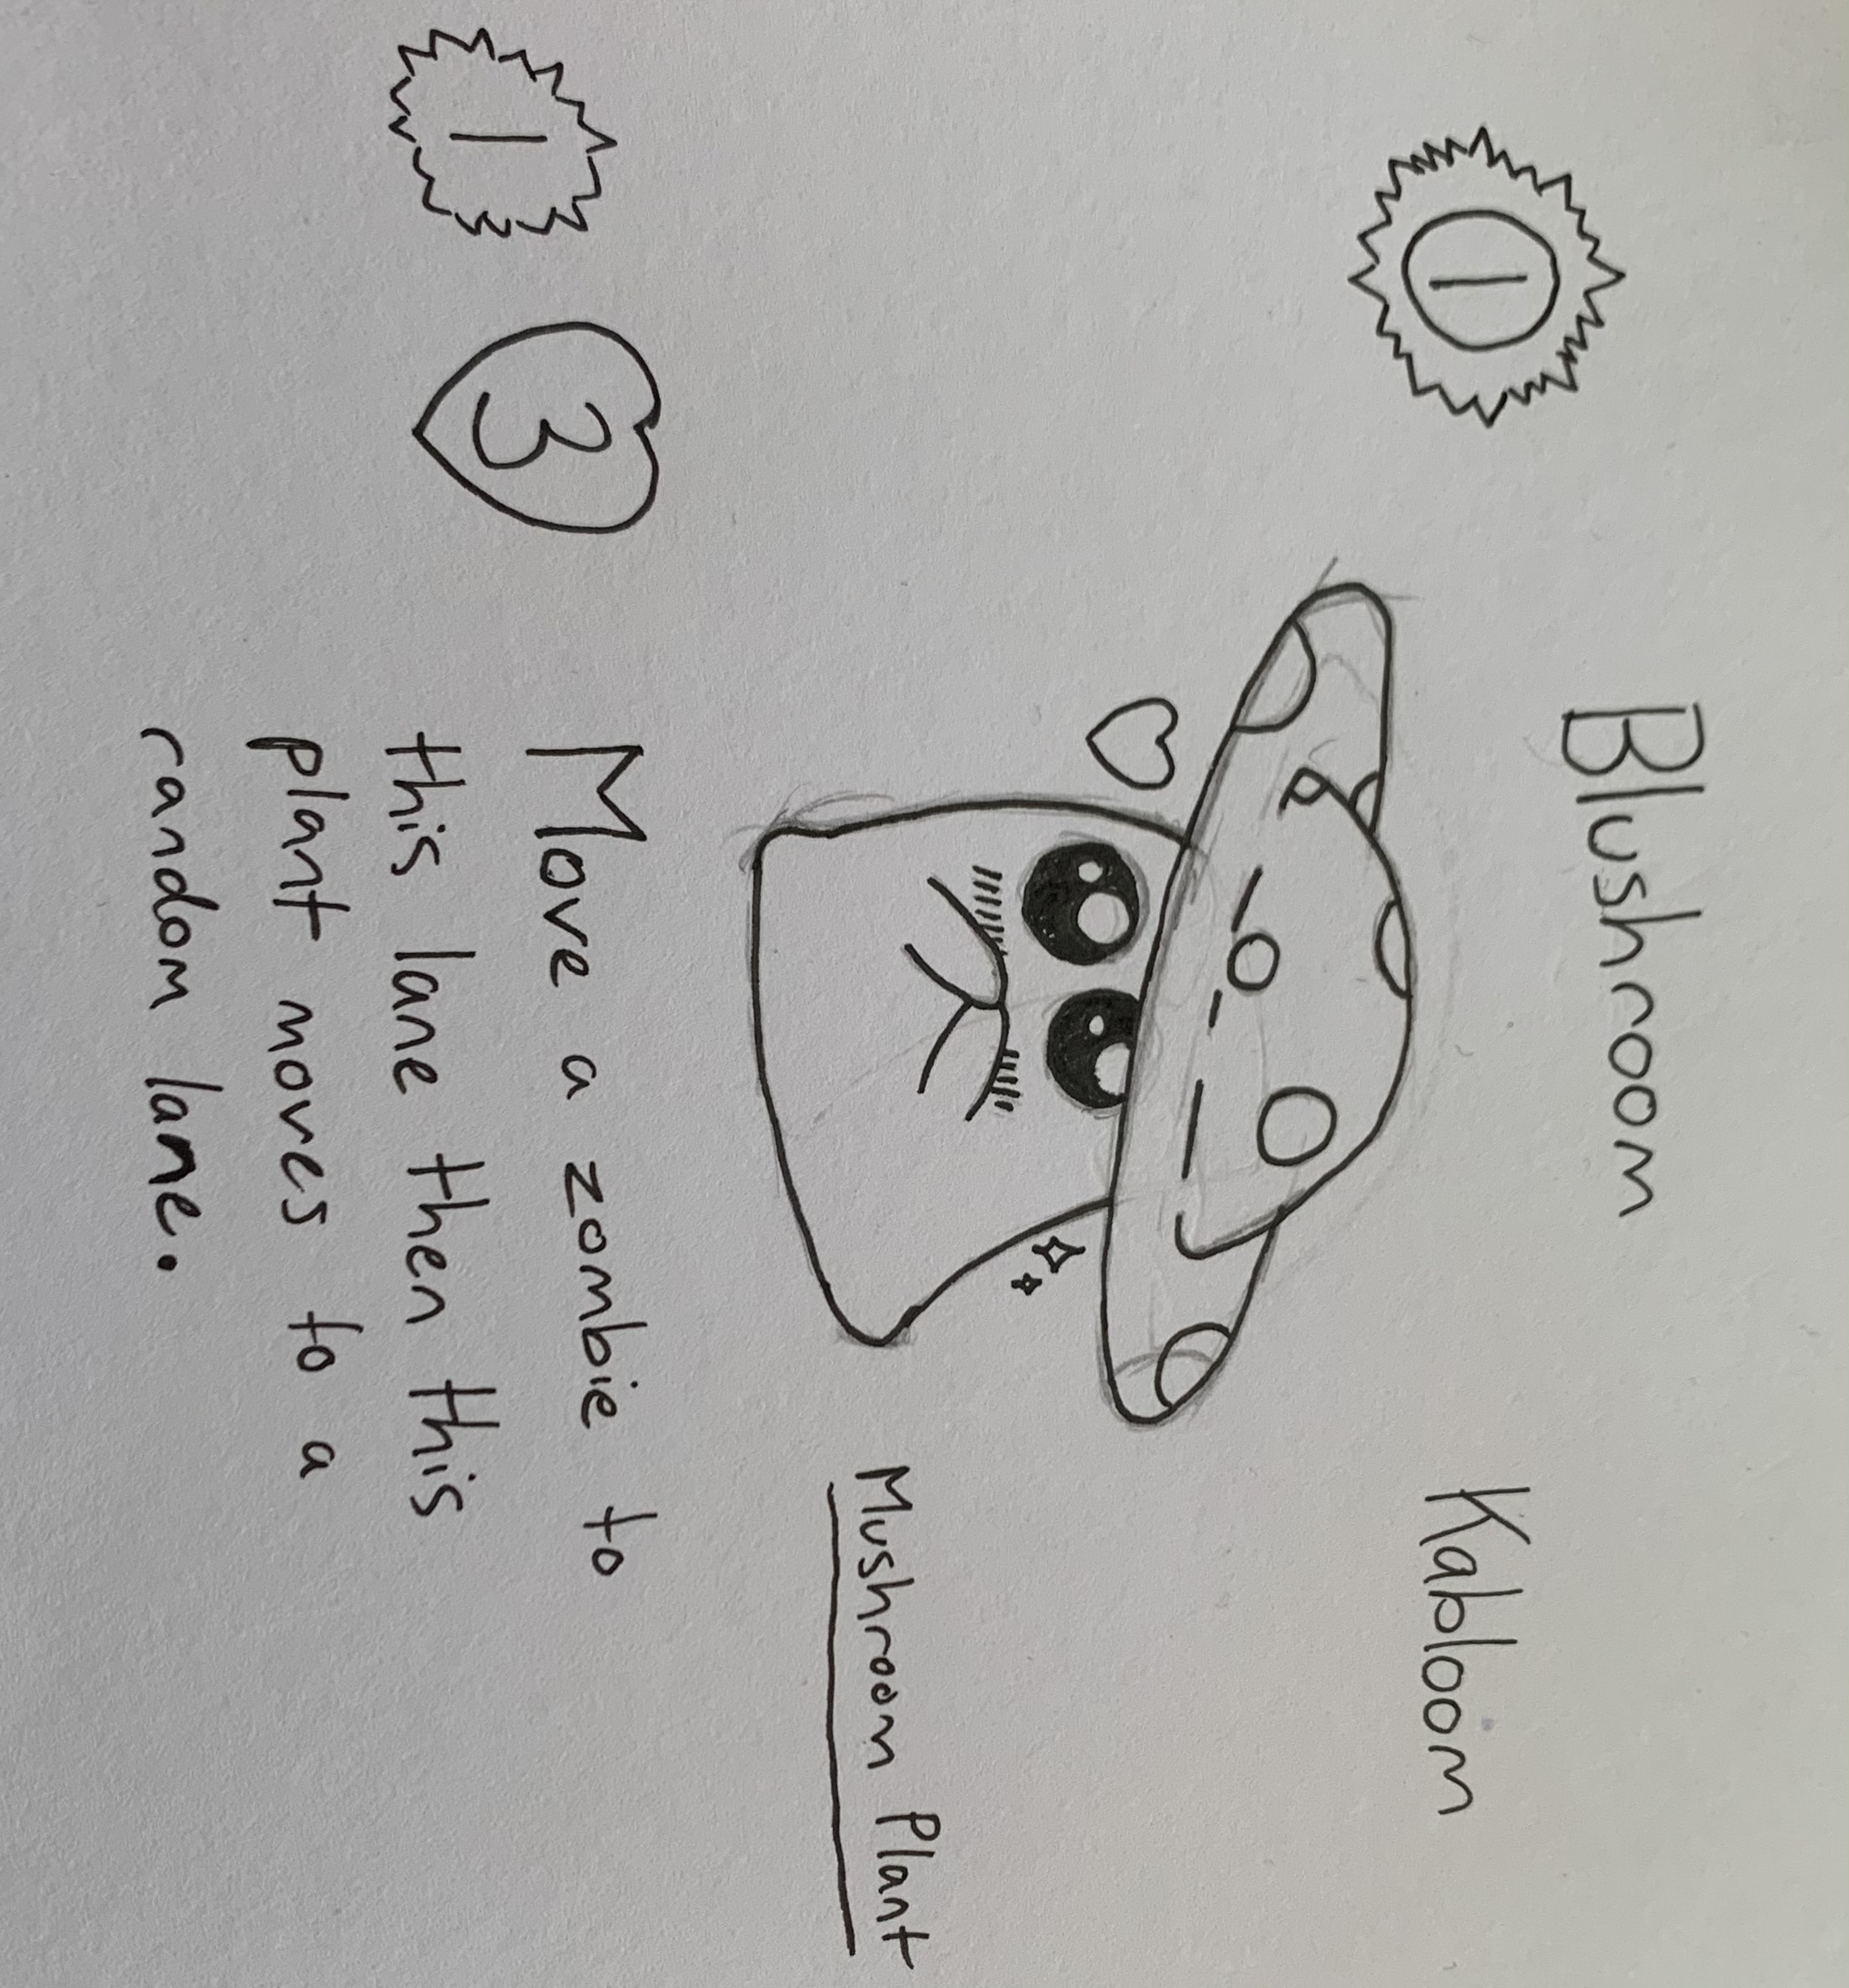 Blushroom
1
Kabloom
Mushroom Plant
1
3
Move a zombie to
this lane then this
plant moves to a
random lane.